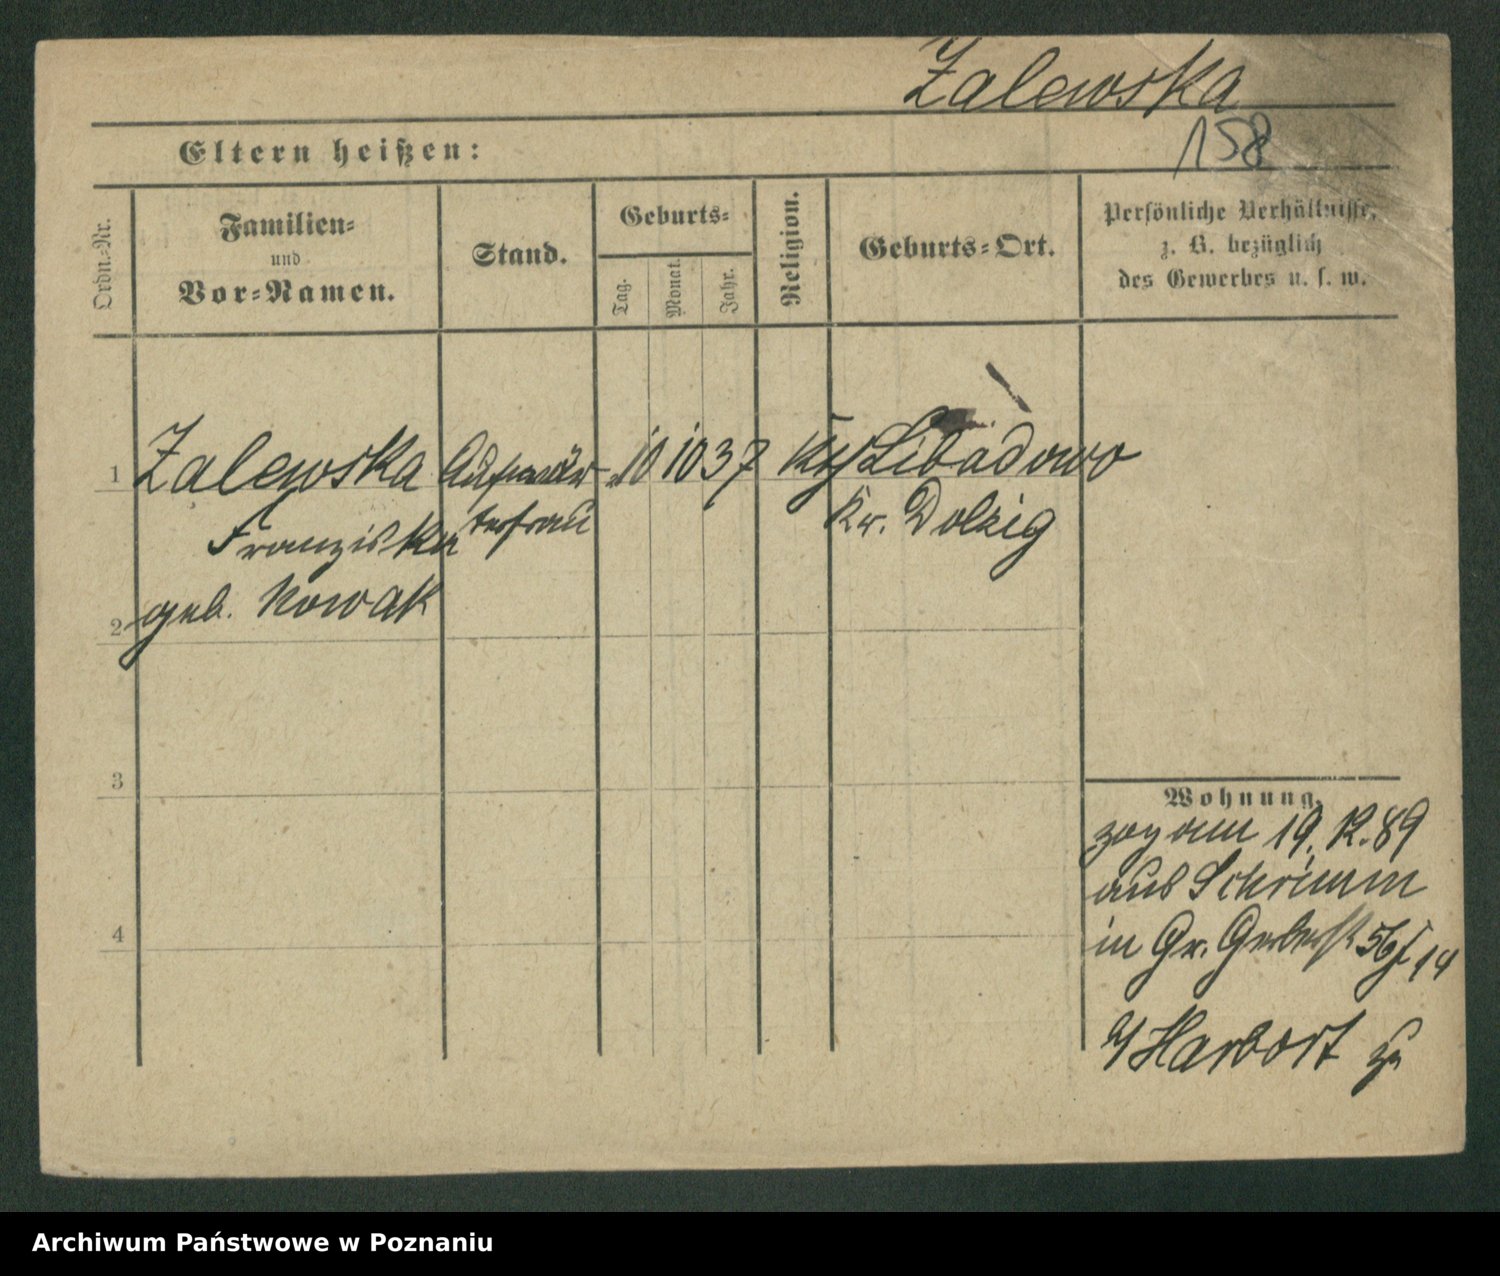 Zalewska
158
Eltern heißen:
Ordn.-Nr.
Familien-
und
Vor-Namen.
Stand.
Geburts-
Tag.
Monat.
Jahr.
Religion.
Geburts-Ort.
Persönliche Verhältnisse,
z. B. bezüglich
des Gewerbes u. s. w.
1
Zalewska Aufwär- 10 10 37 Libadowo
Franziska terfrau Kr. Dolzig
geb. Nowak
2
3
4
Wohnung.
zog am 19. 12. 89
aus Schrimm
in Gr. Gerberst 56 14
Harbort zu
Archiwum Państwowe w Poznaniu